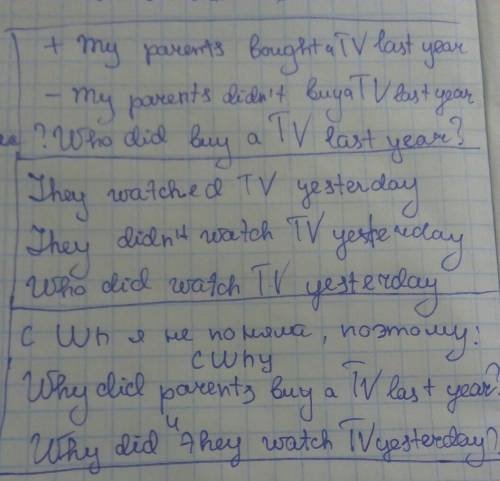 + My parents bought a TV last year
- My parents didn't buy a TV last year
? Who did buy a TV last year?
They watched TV yesterday
They didn't watch TV yesterday
Who did watch TV yesterday
С Wh я не поняла, поэтому:
с Why
Why did parents buy a TV last year?
и
Why did they watch TV yesterday?